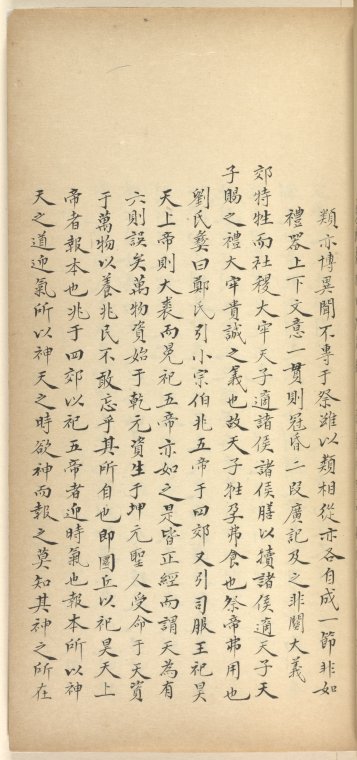 類亦博異聞不專于祭雖以類相從亦各自成一節非如
禮器上下文意一貫則冠昏二段廣記及之非關大義
郊特牲而社稷大牢天子適諸侯諸侯膳以犢諸侯適天子天
子賜之禮大牢貴誠之義也故天子牲孕弗食也祭帝弗用也
劉氏彝曰鄭氏引小宗伯兆五帝于四郊又引司服王祀昊
天上帝則大裘而冕祀五帝亦如之是皆正經而謂天為有
六則誤矣萬物資始于乾元資生于坤元聖人受命于天資
于萬物以養兆民不敢忘乎其所自也即圜丘以祀昊天上
帝者報本也兆于四郊以祀五帝者迎時氣也報本所以神
天之道迎氣所以神天之時欲神而報之莫知其神之所在